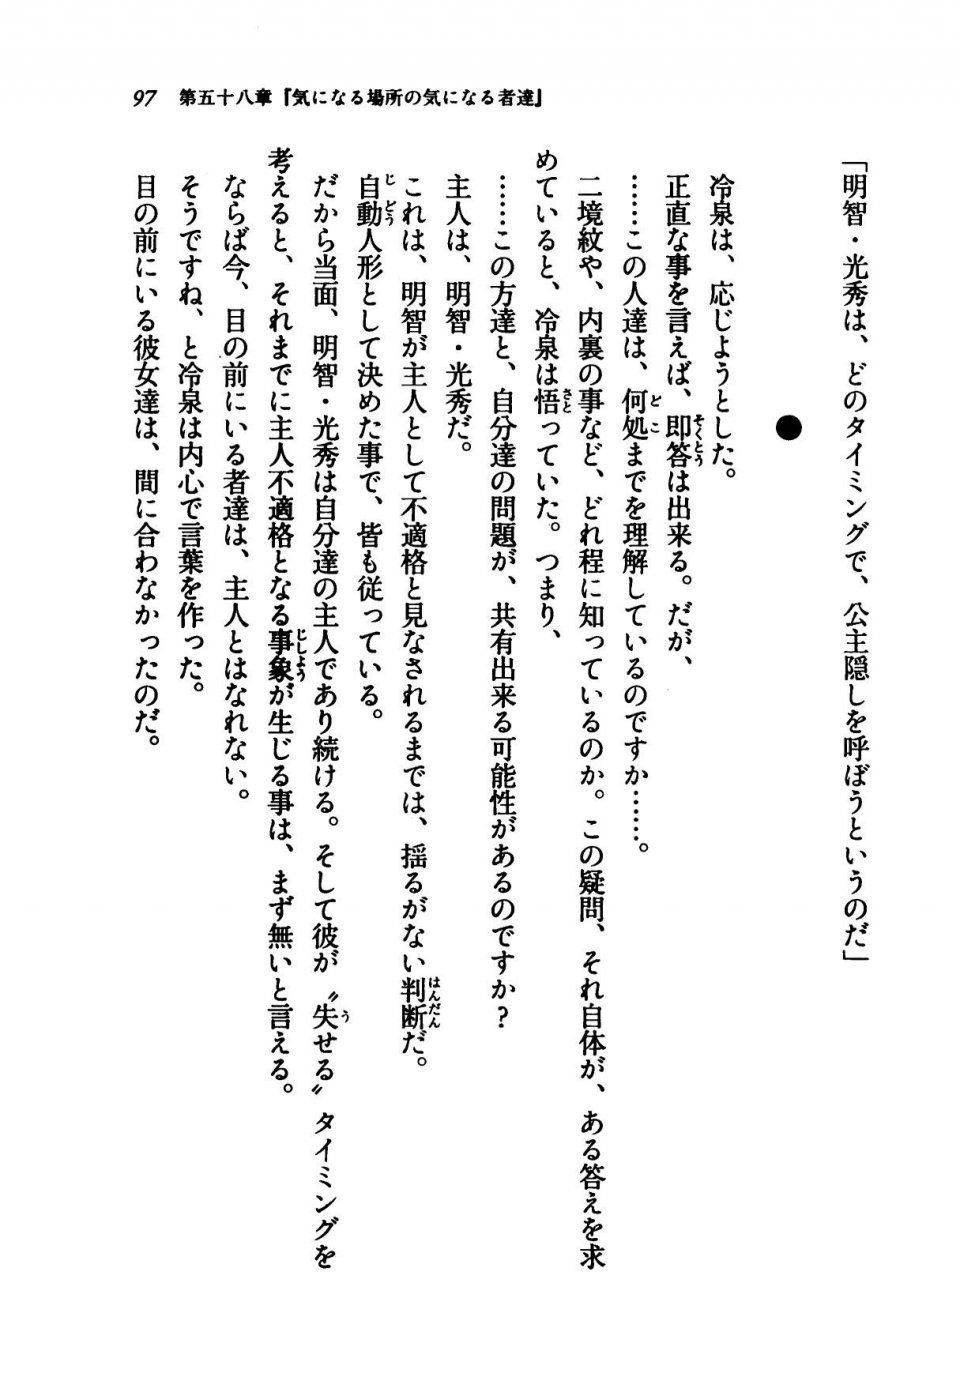 97 第五十八章『気になる場所の気になる者達』
「明智・光秀は、どのタイミングで、公主隠しを呼ぼうというのだ」
●
冷泉は、応じようとした。
正直な事を言えば、即答は出来る。だが、
……この人達は、何処までを理解しているのですか……。
二境紋や、内裏の事など、どれ程に知っているのか。この疑問、それ自体が、ある答えを求
めていると、冷泉は悟っていた。つまり、
……この方達と、自分達の問題が、共有出来る可能性があるのですか？
主人は、明智・光秀だ。
これは、明智が主人として不適格と見なされるまでは、揺るがない判断だ。
自動人形として決めた事で、皆も従っている。
だから当面、明智・光秀は自分達の主人であり続ける。そして彼が〝失せる〟タイミングを
考えると、それまでに主人不適格となる事象が生じる事は、まず無いと言える。
ならば今、目の前にいる者達は、主人とはなれない。
そうですね、と冷泉は内心で言葉を作った。
目の前にいる彼女達は、間に合わなかったのだ。